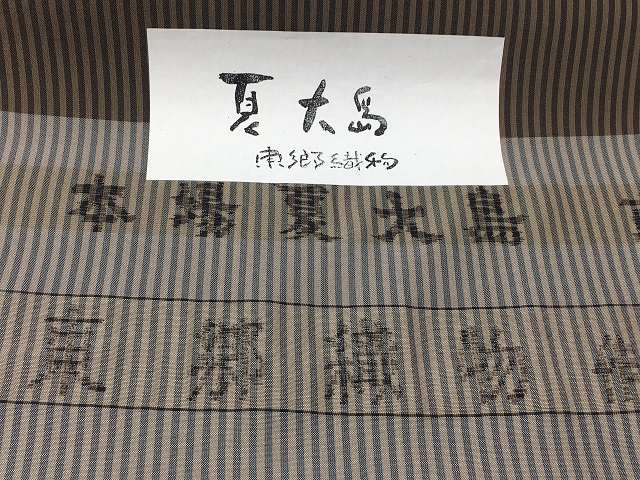 夏大島
東郷織物
本場夏大島
東郷織物